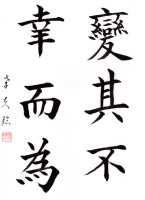 變其不
幸而為